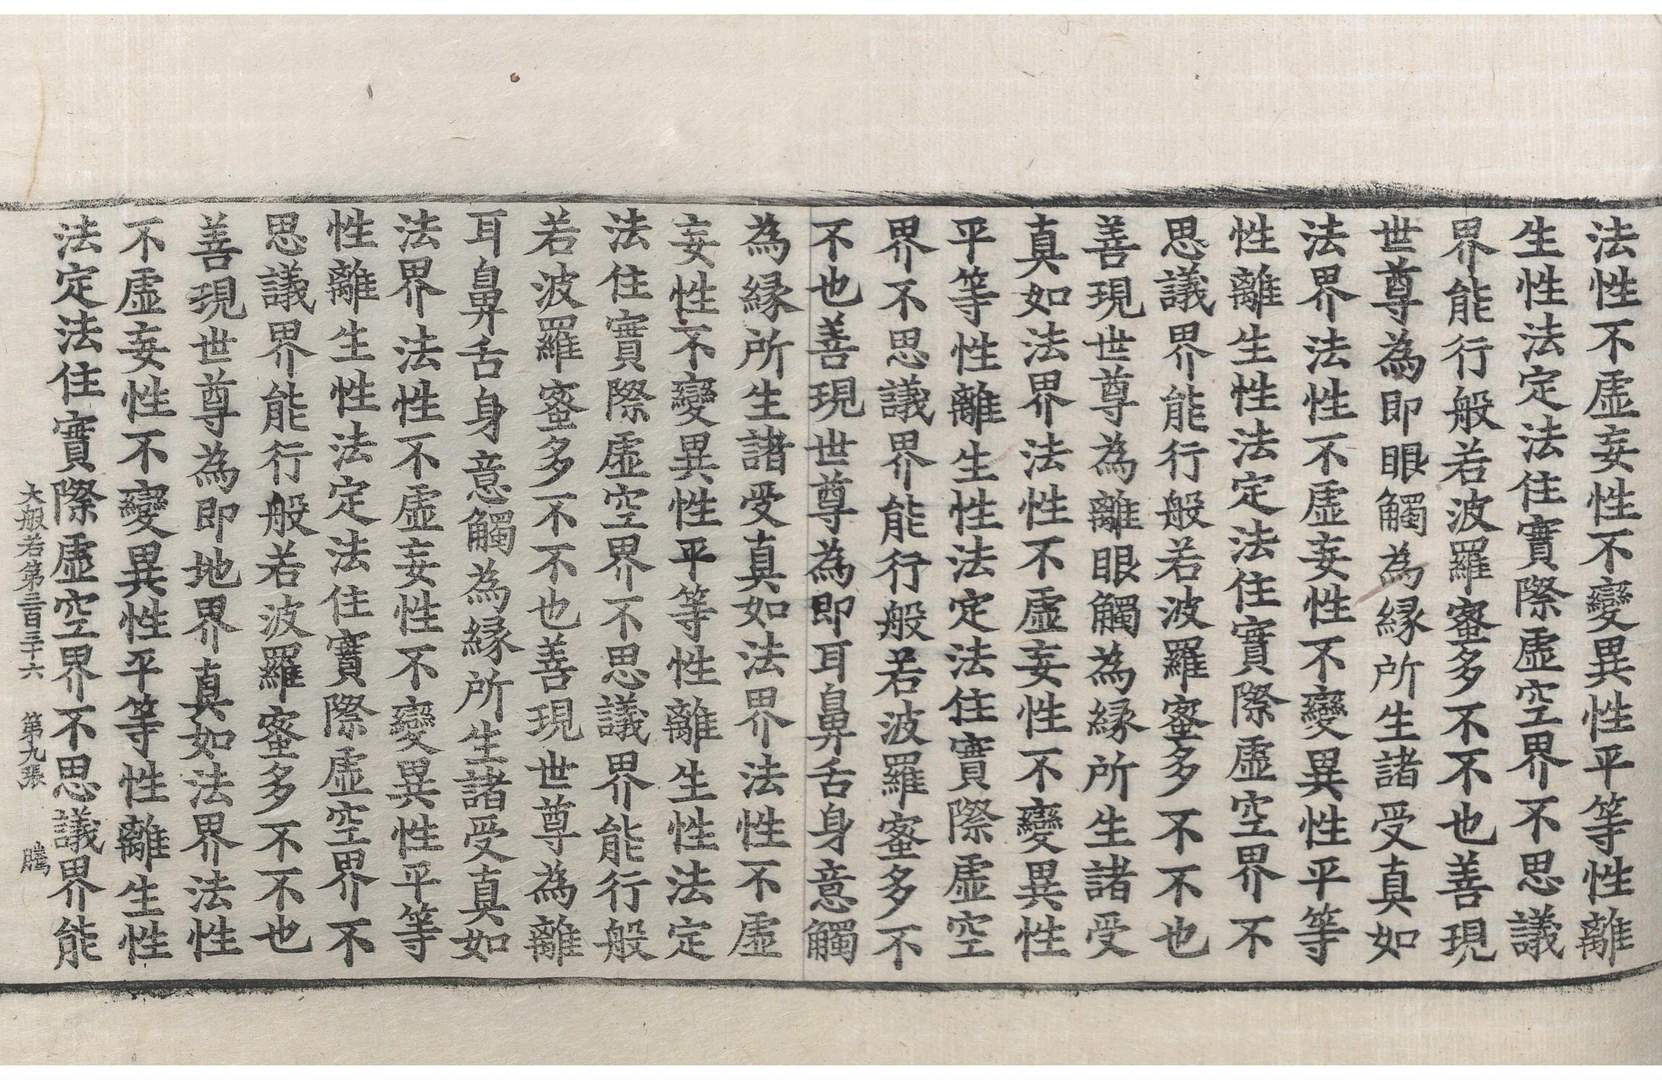 法性不虛妄性不變異性平等性離
生性法定法住實際虛空界不思議
界能行般若波羅蜜多不不也善現
世尊為即眼觸為縁所生諸受真如
法界法性不虛妄性不變異性平等
性離生性法定法住實際虛空界不
思議界能行般若波羅蜜多不不也
善現世尊為離眼觸為縁所生諸受
真如法界法性不虛妄性不變異性
平等性離生性法定法住實際虛空
界不思議界能行般若波羅蜜多不
不也善現世尊為即耳鼻舌身意觸
為縁所生諸受真如法界法性不虛
妄性不變異性平等性離生性法定
法住實際虛空界不思議界能行般
若波羅蜜多不不也善現世尊為離
耳鼻舌身意觸為縁所生諸受真如
法界法性不虛妄性不變異性平等
性離生性法定法住實際虛空界不
思議界能行般若波羅蜜多不不也
善現世尊為即地界真如法界法性
不虛妄性不變異性平等性離生性
法定法住實際虛空界不思議界能
大般若第三百三十六 第九張 騰